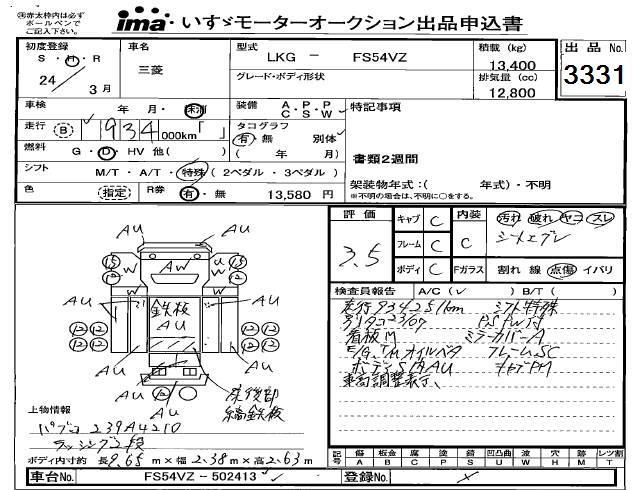 ※赤太枠内は必ず
ボールペンで
ご記入下さい。
ima いすゞモーターオークション出品申込書
初度登録
S・H・R
24 3月
車名
三菱
型式
LKG － FS54VZ
積載 (kg)
13,400
出品No.
3331
グレード・ボディ形状
排気量 (cc)
12,800
車検 年 月・抹消
装備 A・P・P
C・S・W
特記事項
走行 (B) 934 000km「 」
タコグラフ
有・無 別体
( 年 月)
燃料 G・D・HV 他( )
書類2週間
シフト M/T・A/T・特殊 (2ペダル・3ペダル)
色 指定 R券 有・無 13,580 円
架装物年式:( 年式)・不明
※不明の場合は、不明に○をする。
評価
3.5
キャブ C
フレーム C
ボディ C
内装
C
汚れ 破れ ヤコ スレ
シートエグレ
Fガラス 割れ 線 点傷 イバリ
検査員報告 A/C( ✓ ) B/T( )
走行934251km シフト特殊
別タコ-3/07 PS PW付
看板M ミラーカバーA
E/G, T/M オイルベタ フレームSC
ボディS内AU キャブPM
車高調整表示、
AU AU
AU AW UW
W W
15 15
AU AU
鉄板
AU
12 12 12 12
12 12 12 12
W
AU
12
AU
AU
床後部
縞鉄板
上物情報
パブコ 239A4210
ラッシング2段
ボディ内寸約 長9.65 m×幅 2.38 m×高 2.63 m
記号 傷 A 板金 B 腐 C 塗 P 錆 S 凹凸曲 U 波 W 穴 H 跡 M レツ割 T
車台No. FS54VZ－502413
登録No.